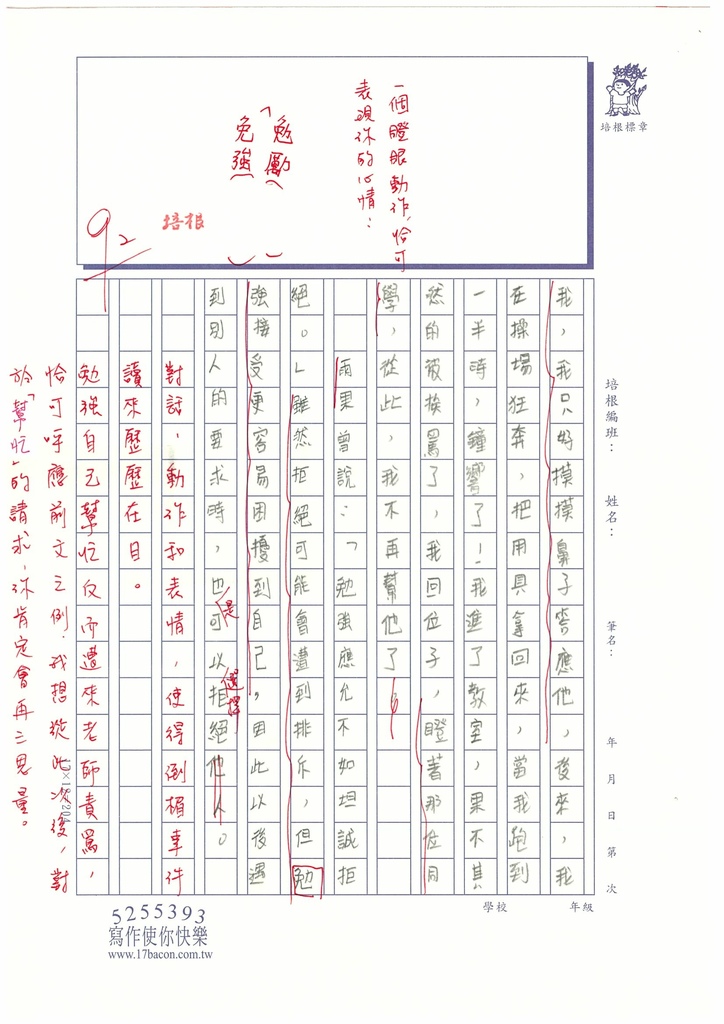 一個瞪眼動作，恰可
表現你的心情：
「勉勵」
免強
92
培根
培根標章
培根編班：
姓名：
筆名：
年 月 日 第 次
學校
年級
我，我只好摸摸鼻子答應他，後來，我
在操場狂奔，把用具拿回來，當我跑到
一半時，鐘響了！我進了教室，果不其
然的被挨罵了，我回位子，瞪著那位同
學，從此，我不再幫他了。
雨果曾說：「勉強應允不如坦誠拒
絕。」雖然拒絕可能會遭到排斥，但勉
強接受更容易困擾到自己，因此以後遇
到別人的要求時，也可以拒絕他人。
是
選擇
對話、動作和表情，使得倒楣事件
讀來歷歷在目。
勉強自己幫忙反而遭來老師責罵，
恰可呼應前文之例，我想從此次後，對
於「幫忙」的請求，你肯定會再三思量。
5255393
寫作使你快樂
www.17bacon.com.tw